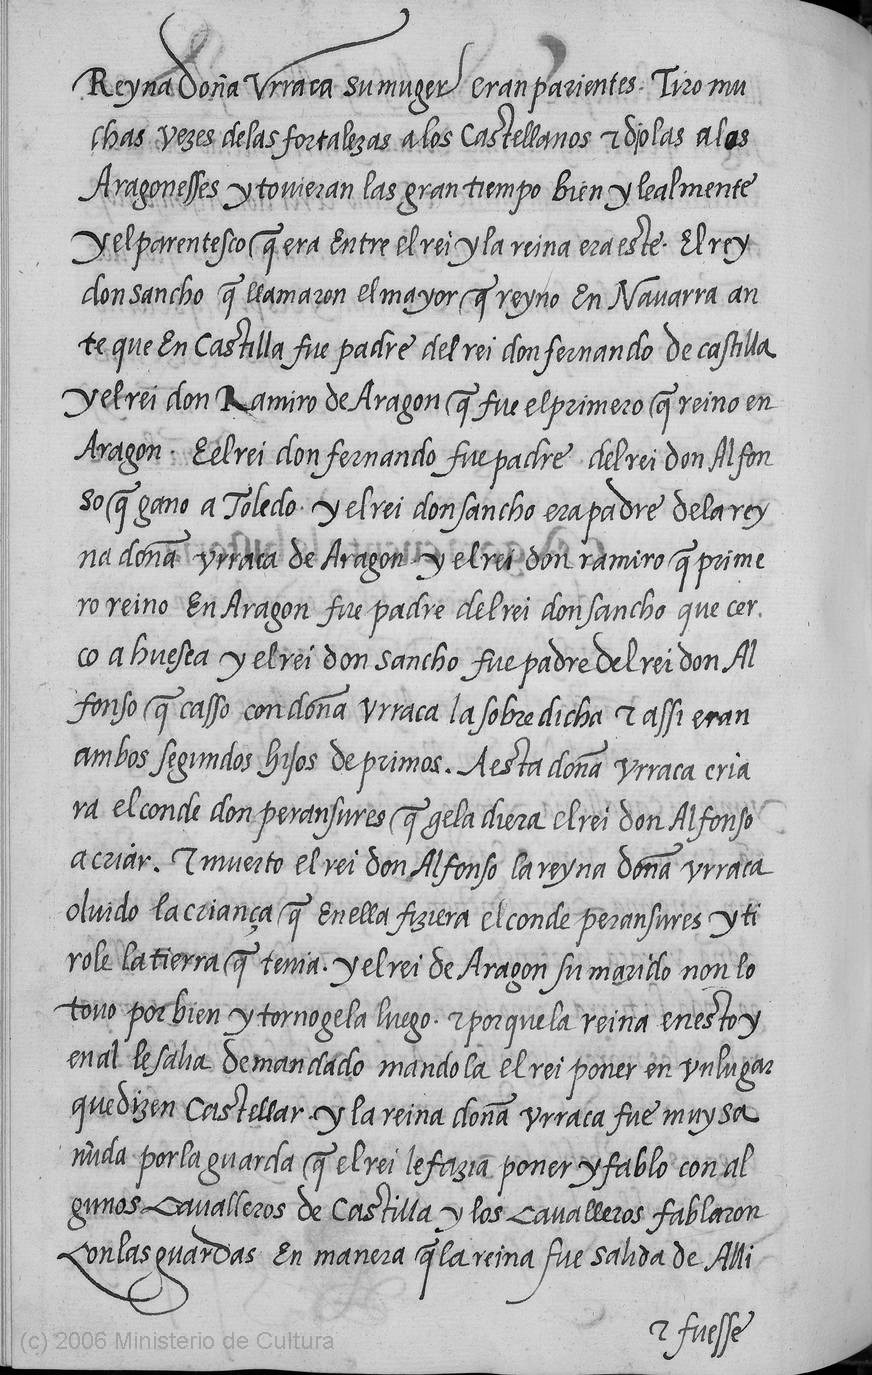 Reyna doña Vrraca su muger eran parientes. Tiro mu
chas vezes de las fortalezas a los Castellanos τ diolas a los
Aragonesses y touieran las gran tiempo bien y lealmente
y el parentesco q̃ era Entre el rei y la reina era este. El rey
don sancho q̃ llamaron el mayor q̃ reyno En Nauarra an
te que En Castilla fue padre del rei don fernando de castilla
y el rei don Ramiro de Aragon q̃ fue el primero q̃ reino en
Aragon. E el rei don fernando fue padre del rei don Alfon
so q̃ gano a Toledo. y el rei don sancho era padre de la rey
na doña vrraca de Aragon. y el rei don ramiro q̃ prime
ro reino En Aragon fue padre del rei don sancho que cer
co a huesca y el rei don sancho fue padre del rei don Al
fonso q̃ casso con doña vrraca la sobre dicha τ assi eran
ambos segundos hijos de primos. A esta doña vrraca cria
ra el conde don peransures q̃ gela diera el rei don Alfonso
a criar. τ muerto el rei don Alfonso la reyna doña vrraca
oluido la criança q̃ En ella fiziera el conde peransures y ti
role la tierra q̃ tenia. y el rei de Aragon su marido non lo
touo por bien y tornogela luego. τ por que la reina en esto y
en al le salia demandado mandola el rei poner en vn lugar
que dizen Castellar. y la reina doña vrraca fue muy sa
ñuda por la guarda q̃ el rei le fazia poner y fablo con al
gunos Caualleros de Castilla y los Caualleros fablaron
Con las guardas En manera q̃ la reina fue salida de Alli
τ fuesse
(c) 2006 Ministerio de Cultura